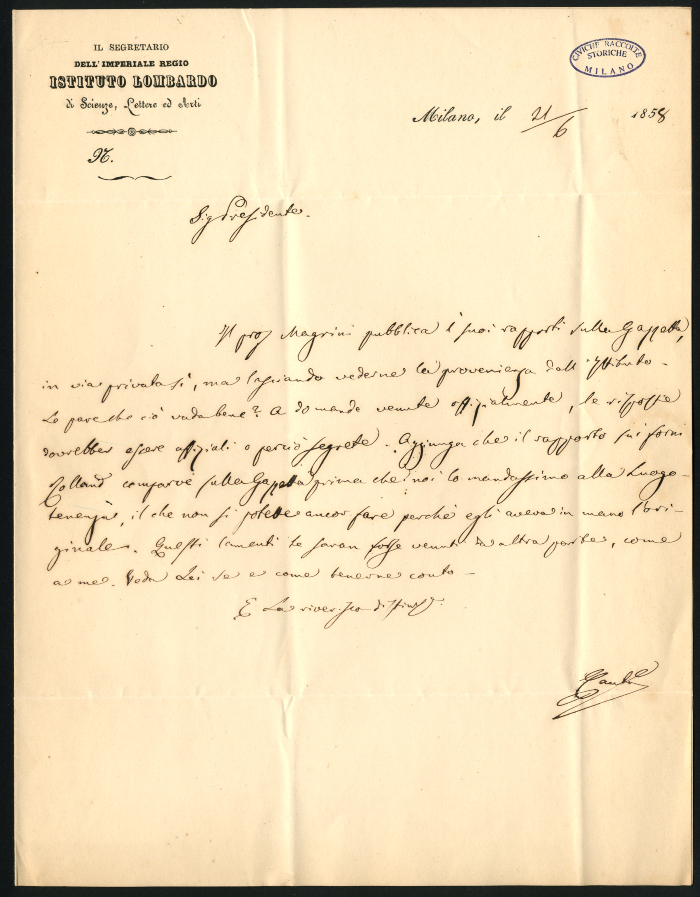 IL SEGRETARIO
DELL'IMPERIALE REGIO
ISTITUTO LOMBARDO
di Scienze, Lettere ed Arti
N.
CIVICHE RACCOLTE
STORICHE
MILANO
Milano, il 21/6 1858
Sig Presidente.
Il prof Magrini pubblica i suoi rapporti sulla Gazzetta,
in via privata sì, ma lasciando vederne la provenienza dall'Istituto.
Le pare che ciò vada bene? A domande venute offizialmente, le risposte
dovrebber essere offiziali e perciò segrete. Aggiunga che il rapporto sui forni
Colland comparve sulla Gazzetta prima che noi lo mandassimo alla Luogo-
tenenza, il che non si potette ancor fare perchè egli aveva in mano l'ori-
ginale. Questi lamenti Le saran forse venuti da altra parte, come
a me. Veda Lei se e come tenerne conto.
E La riverisco
Cantù